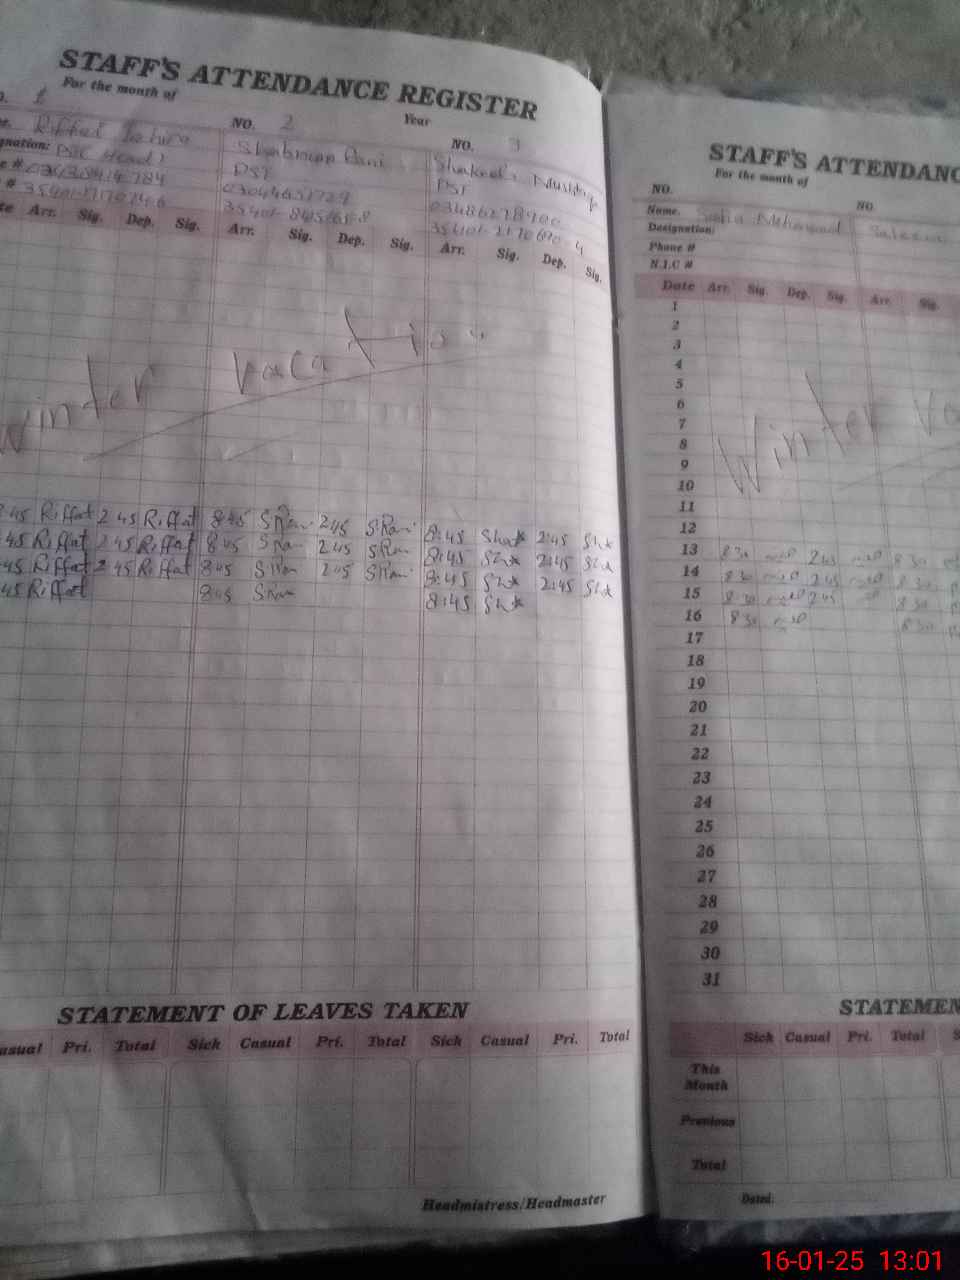 STAFF'S ATTENDANCE REGISTER
For the month of
Year
NO. 2
NO. 3
Riffat Tahira
Shabnam Rani
Shakeela Mushtaq
gnation: PST Head
PST
PST
Arr. Sig. Dep. Sig. Arr. Sig. Dep. Sig. Arr. Sig. Dep. Sig.
Winter vacatio
45 Riffat 2 45 Riffat 8 45 SRani 2 45 SRani 8:45 Sha 2:45 Sha
45 Riffat 2 45 Riffat 8 45 SRani 2 45 SRani 8:45 Sha 2:45 Sha
45 Riffat 2 45 Riffat 8 45 SRani 2 45 SRani 8:45 Sha 2:45 Sha
45 Riffat 8 45 SRani 8:45 Sha
STATEMENT OF LEAVES TAKEN
asual Pri. Total Sick Casual Pri. Total Sick Casual Pri. Total
Headmistress/Headmaster
STAFF'S ATTENDANC
For the month of
NO.
NO.
Name.
Designation:
Phone #
N.I.C #
Date Arr. Sig. Dep. Sig. Arr. Sig.
1
2
3
4
5
6
7
8
9
10
11
12
Winter va
13 8 30 2 45 8 30
14 8 30 2 45 8 30
15 8 30 2 45 8 30
16 8 30 8 30
17
18
19
20
21
22
23
24
25
26
27
28
29
30
31
STATEMEN
Sick Casual Pri. Total S
This Month
Previous
Total
Dated:
16-01-25 13:01